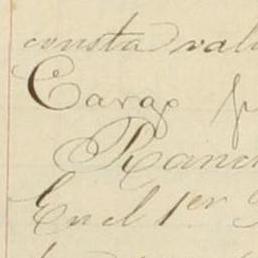 consta val
Cargo p
Ranc
En el 1er